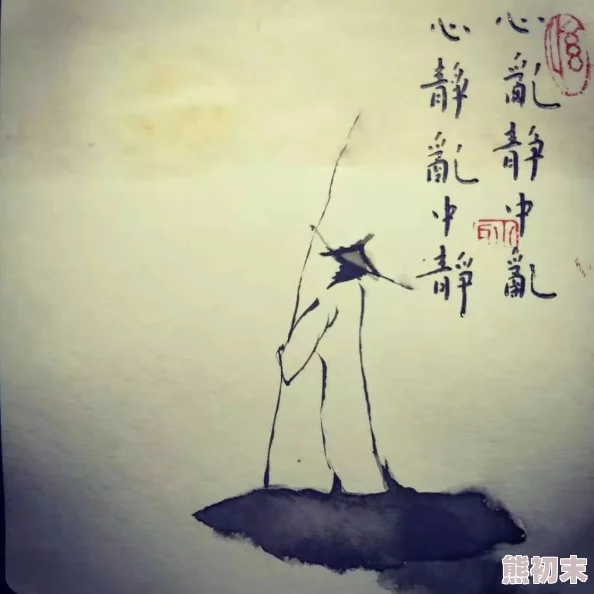 心亂靜中亂
心靜亂中靜
熊初末